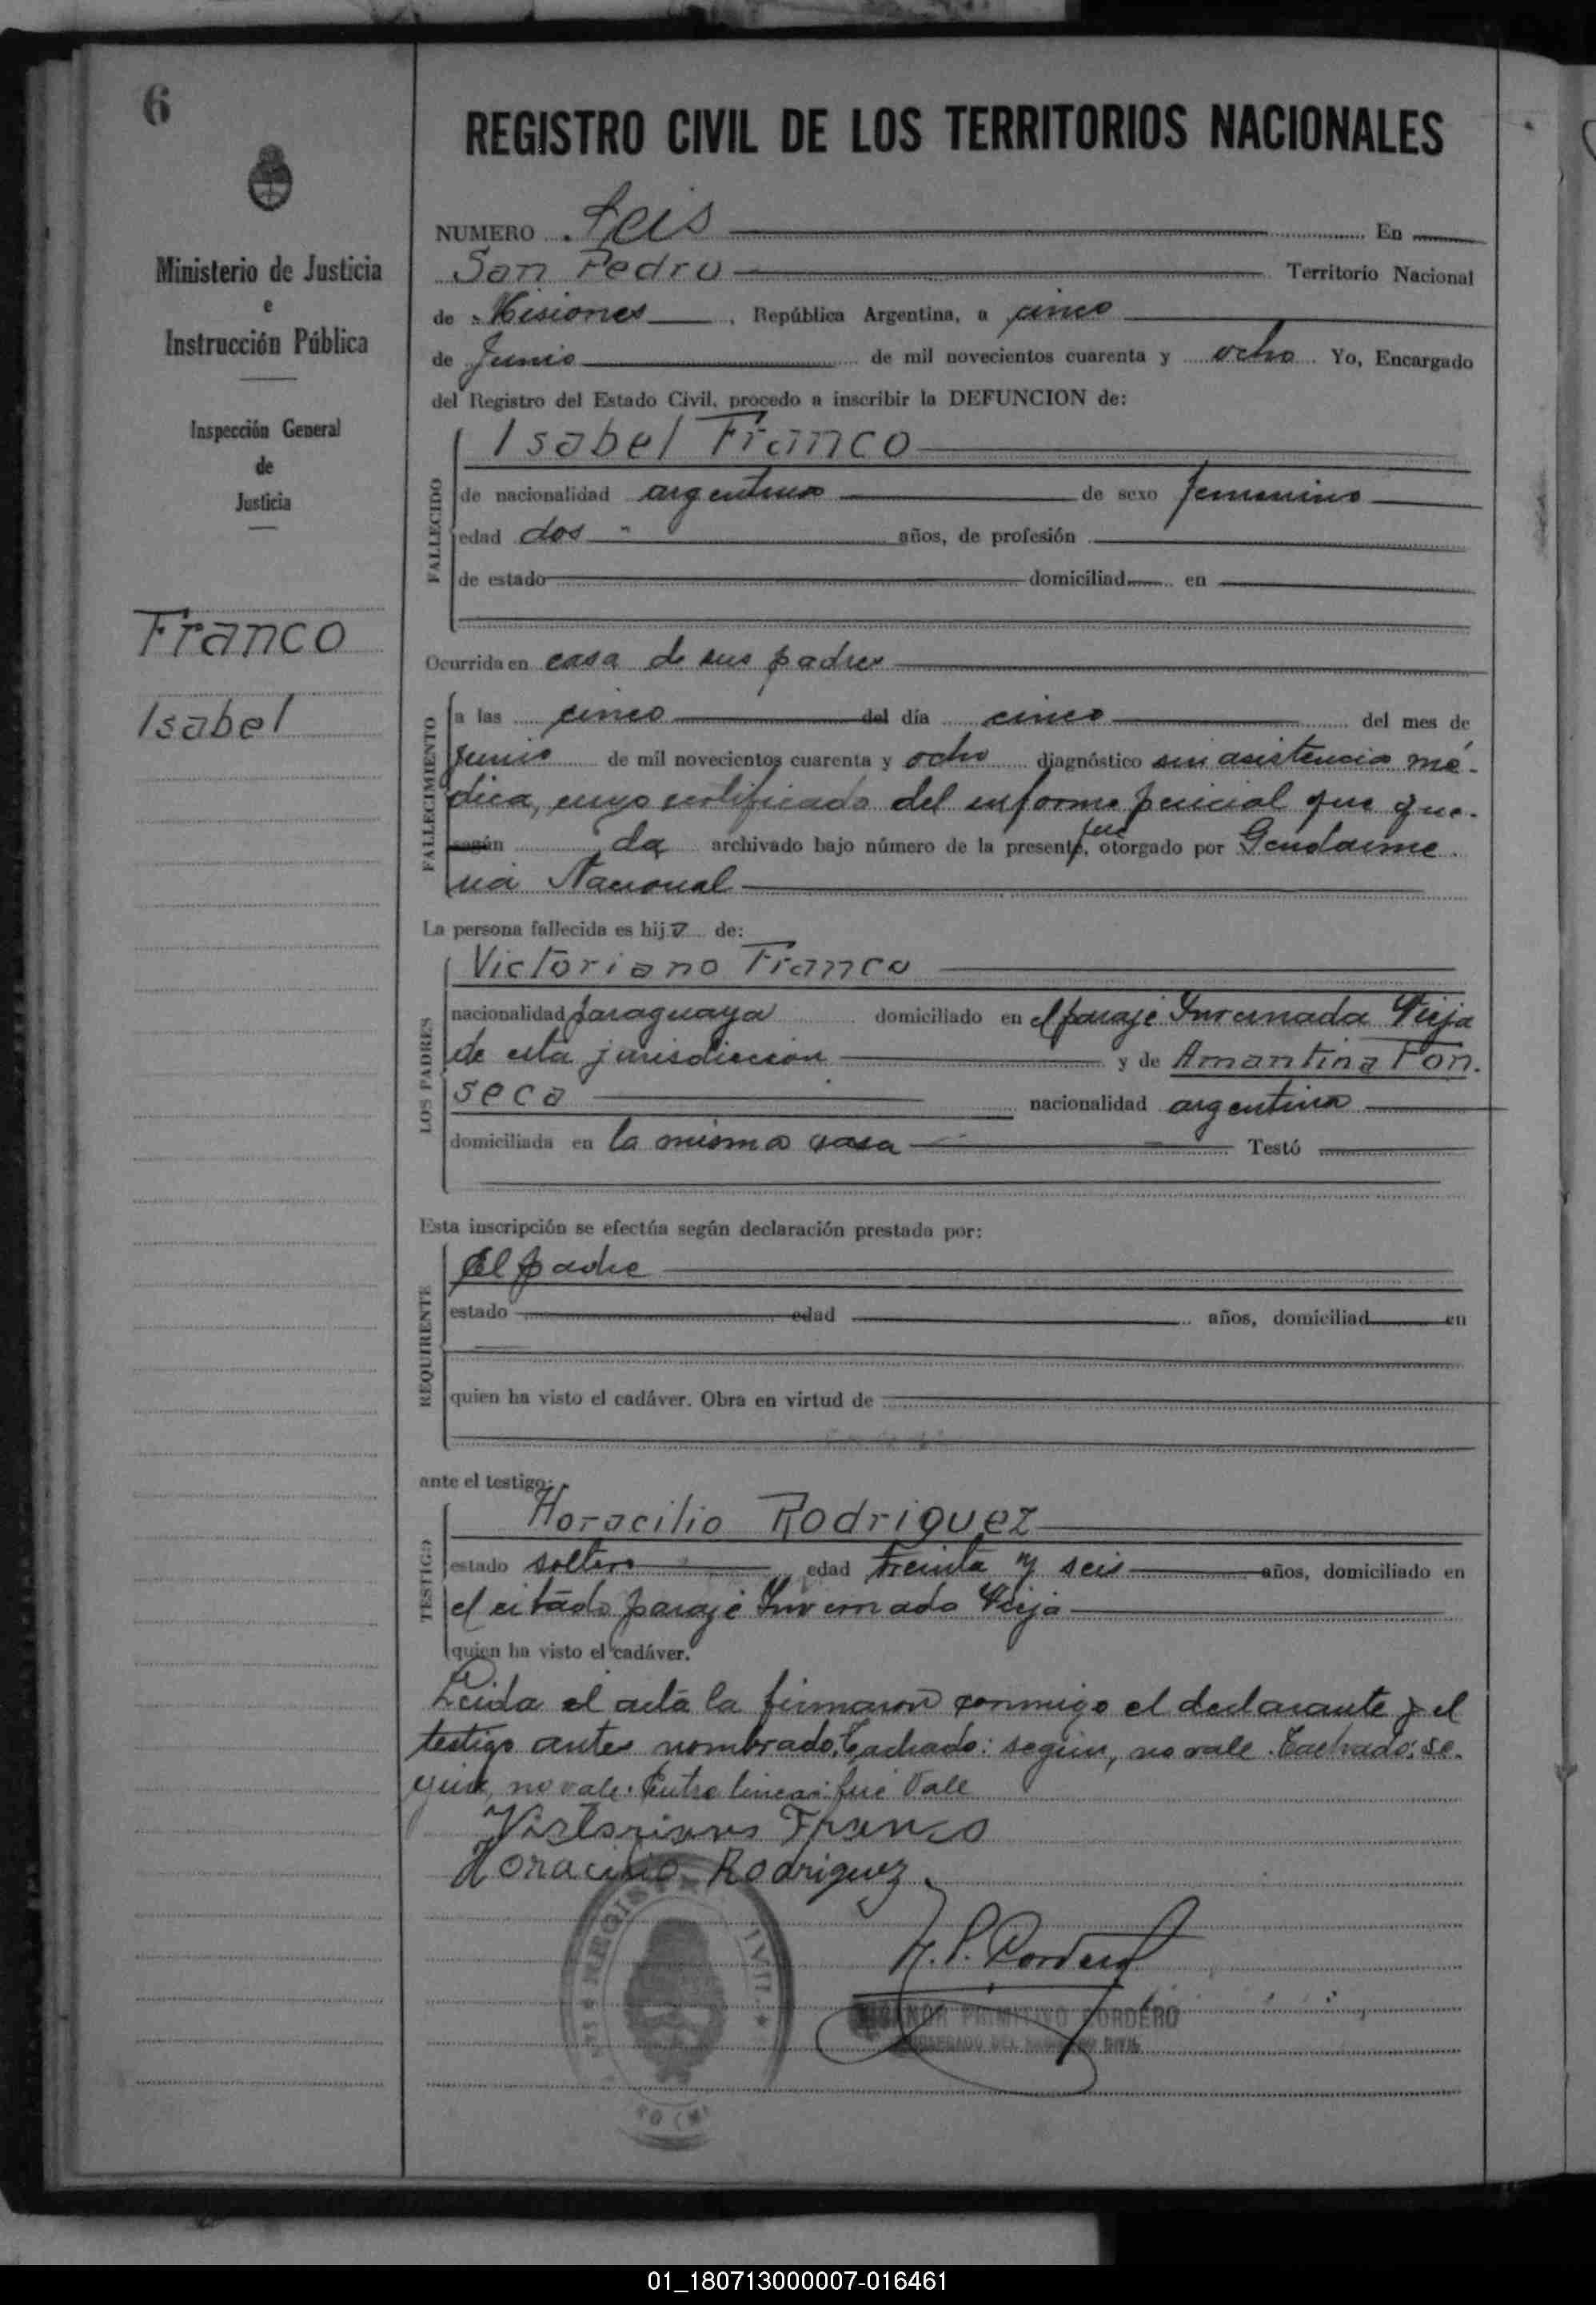 6
Ministerio de Justicia
e
Instrucción Pública
Inspección General
de
Justicia
Franco
Isabel
REGISTRO CIVIL DE LOS TERRITORIOS NACIONALES
NUMERO Seis En
San Pedro Territorio Nacional
de Misiones, República Argentina, a cinco
de Junio de mil novecientos cuarenta y ocho Yo, Encargado
del Registro del Estado Civil, procedo a inscribir la DEFUNCION de:
FALLECIDO
Isabel Franco
de nacionalidad argentina de sexo femenino
edad dos años, de profesión
de estado domiciliad en
Ocurrida en casa de sus padres
FALLECIMIENTO
a las cinco del día cinco del mes de
Junio de mil novecientos cuarenta y ocho diagnóstico sin asistencia mé-
dica, cuyo certificado del informe pericial que que-
según da archivado bajo número de la presente, fué otorgado por Gendarme-
ria Nacional
La persona fallecida es hija de:
LOS PADRES
Victoriano Franco
nacionalidad paraguaya domiciliado en el paraje Invernada Vieja
de esta jurisdicción y de Amantina Fon-
seca nacionalidad argentina
domiciliada en la misma casa Testó
Esta inscripción se efectúa según declaración prestada por:
REQUIRENTE
El padre
estado edad años, domiciliad en
quien ha visto el cadáver. Obra en virtud de
ante el testigo:
TESTIGO
Horacilio Rodriguez
estado soltero edad treinta y seis años, domiciliado en
el citado paraje Invernada Vieja
quien ha visto el cadáver.
Leida el acta la firmaron conmigo el declarante y el
testigo antes nombrado. Tachado: según, no vale. Tachado: se-
gún, no vale. Entre lineas: fué Vale
Victoriano Franco
Horacilio Rodriguez
REGISTRO CIVIL
H. P. Cordero
PRIMITIVO CORDERO
ENCARGADO DEL REGISTRO CIVIL
01_180713000007-016461